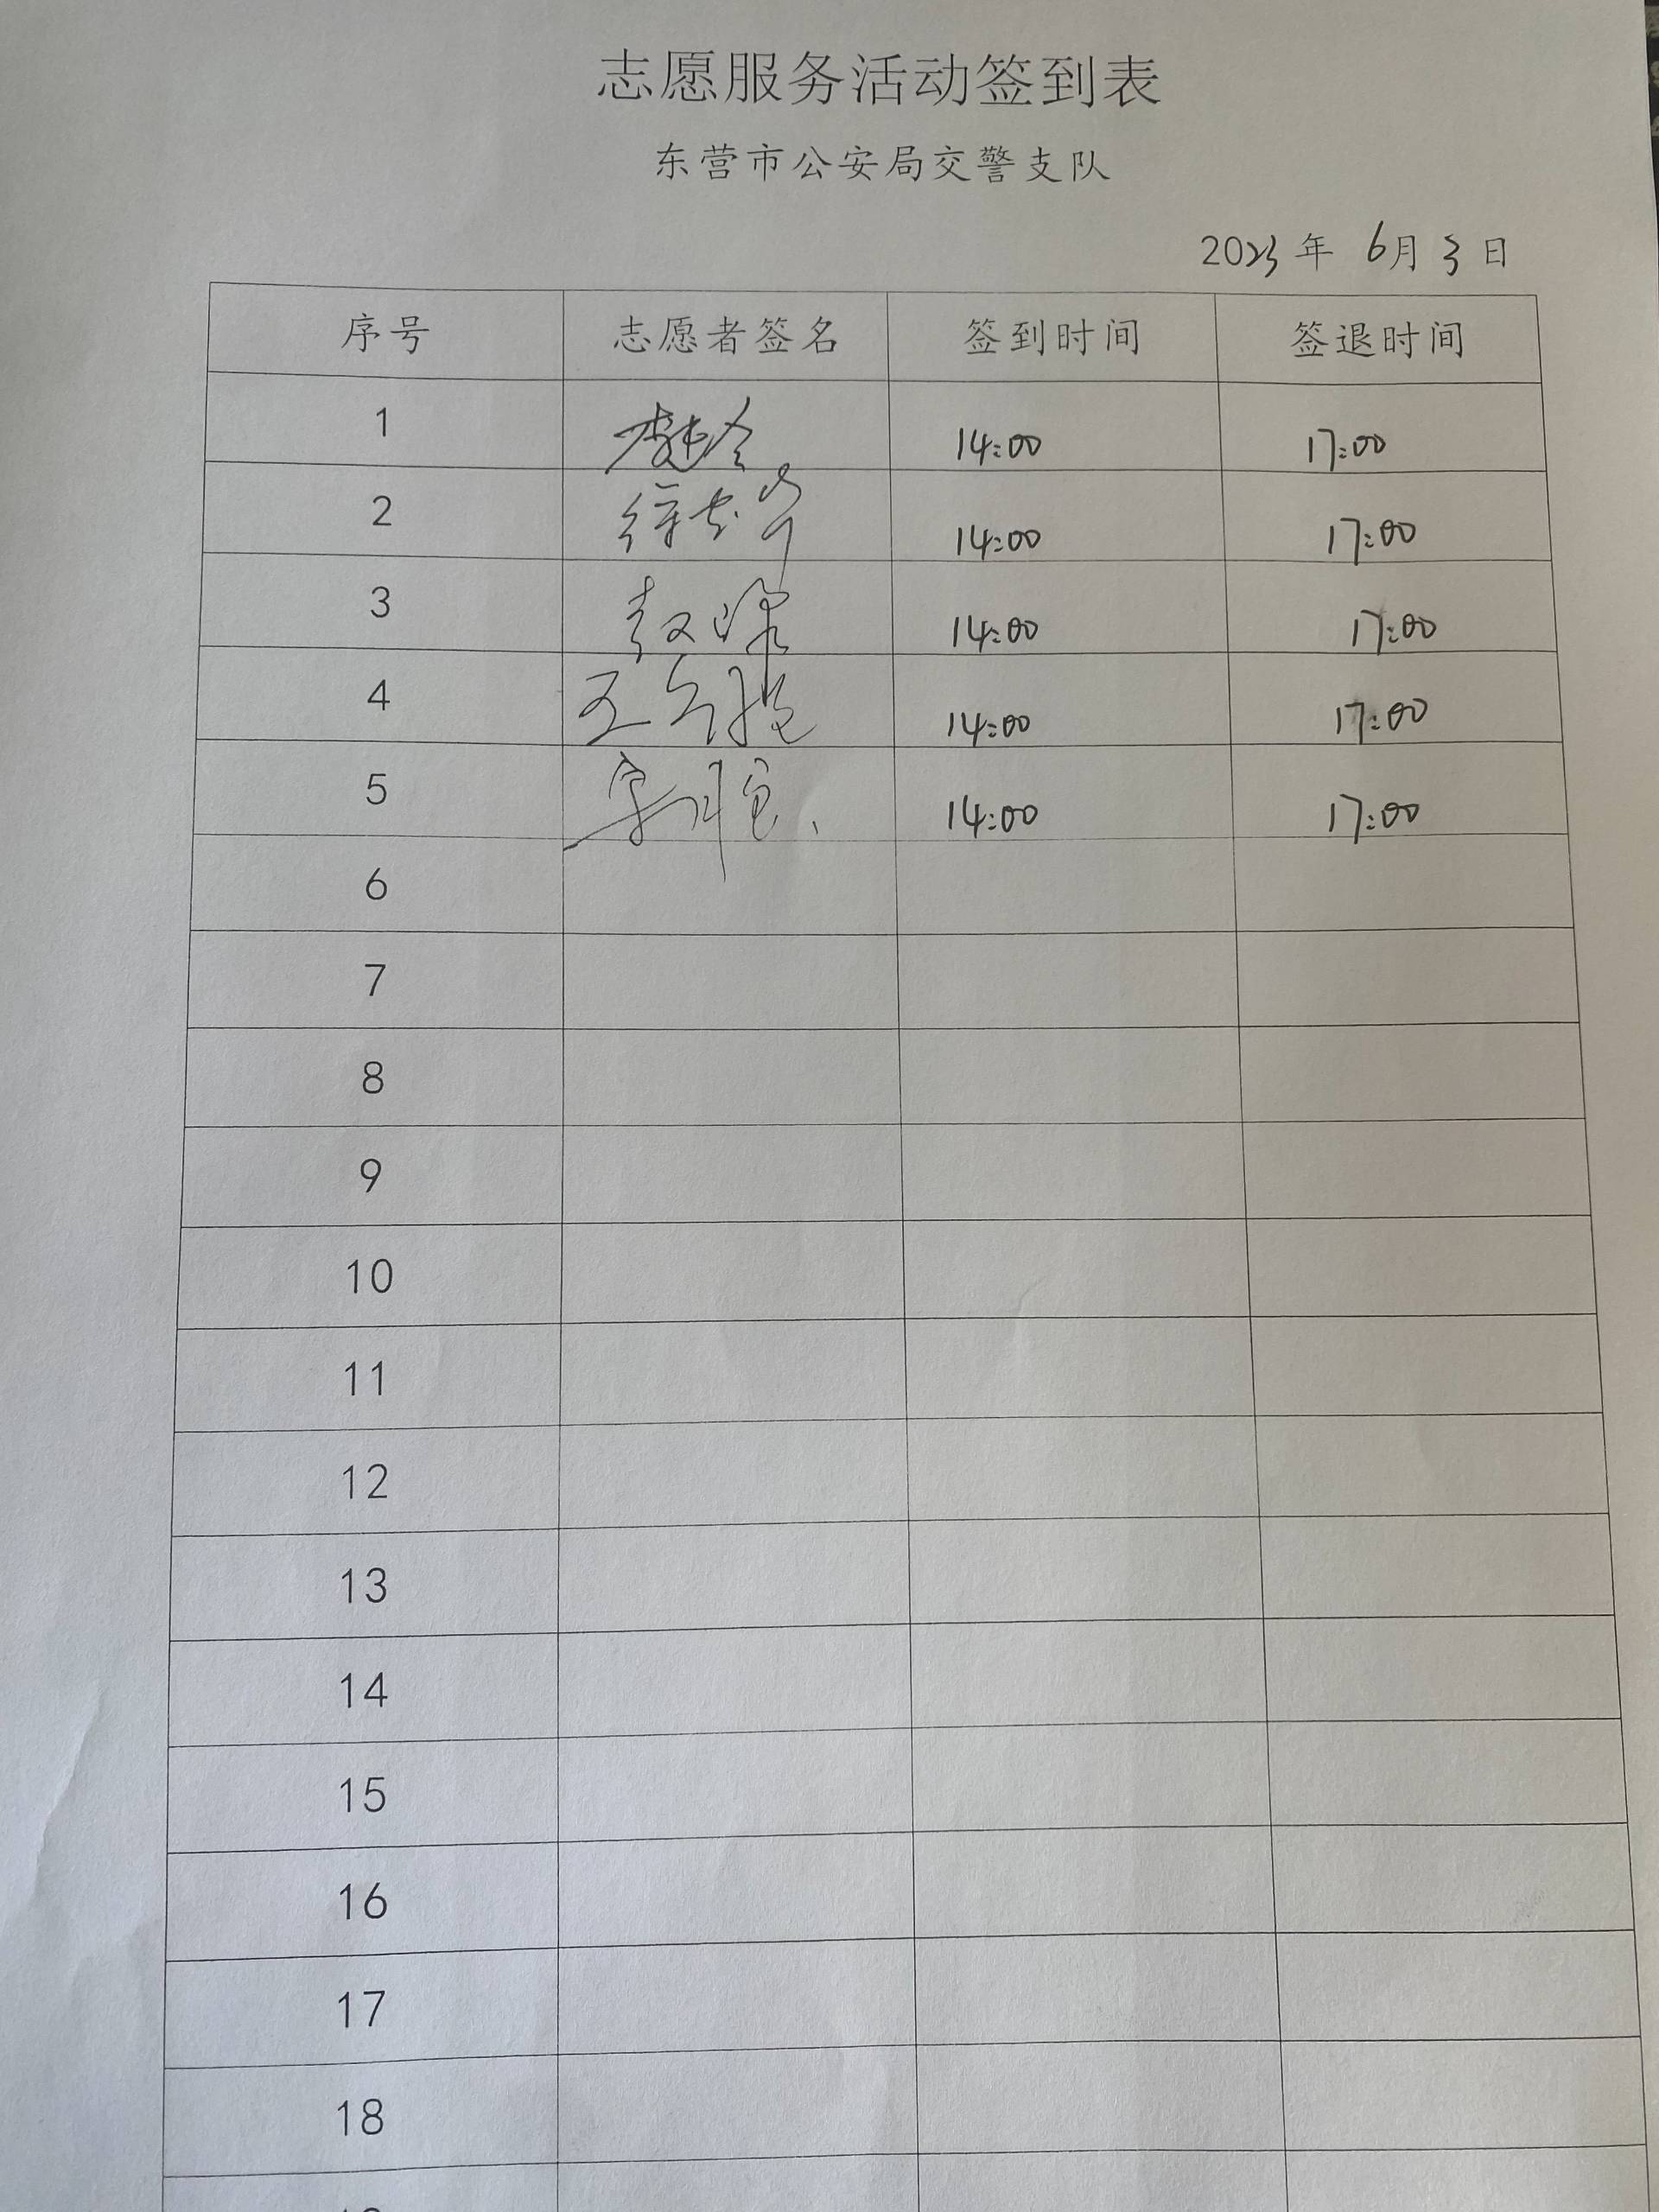 志愿服务活动签到表
东营市公安局交警支队
2023年 6月3日
序号 志愿者签名 签到时间 签退时间
1 14:00 17:00
2 14:00 17:00
3 赵 14:00 17:00
4 王 14:00 17:00
5 14:00 17:00
6
7
8
9
10
11
12
13
14
15
16
17
18